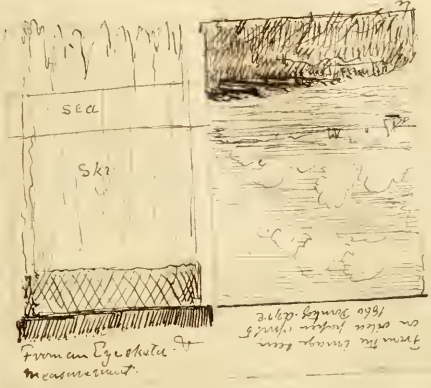 Sea
Sky
From an Eye sketch &
measurement.
From the image seen
on oiled paper April 5
1860